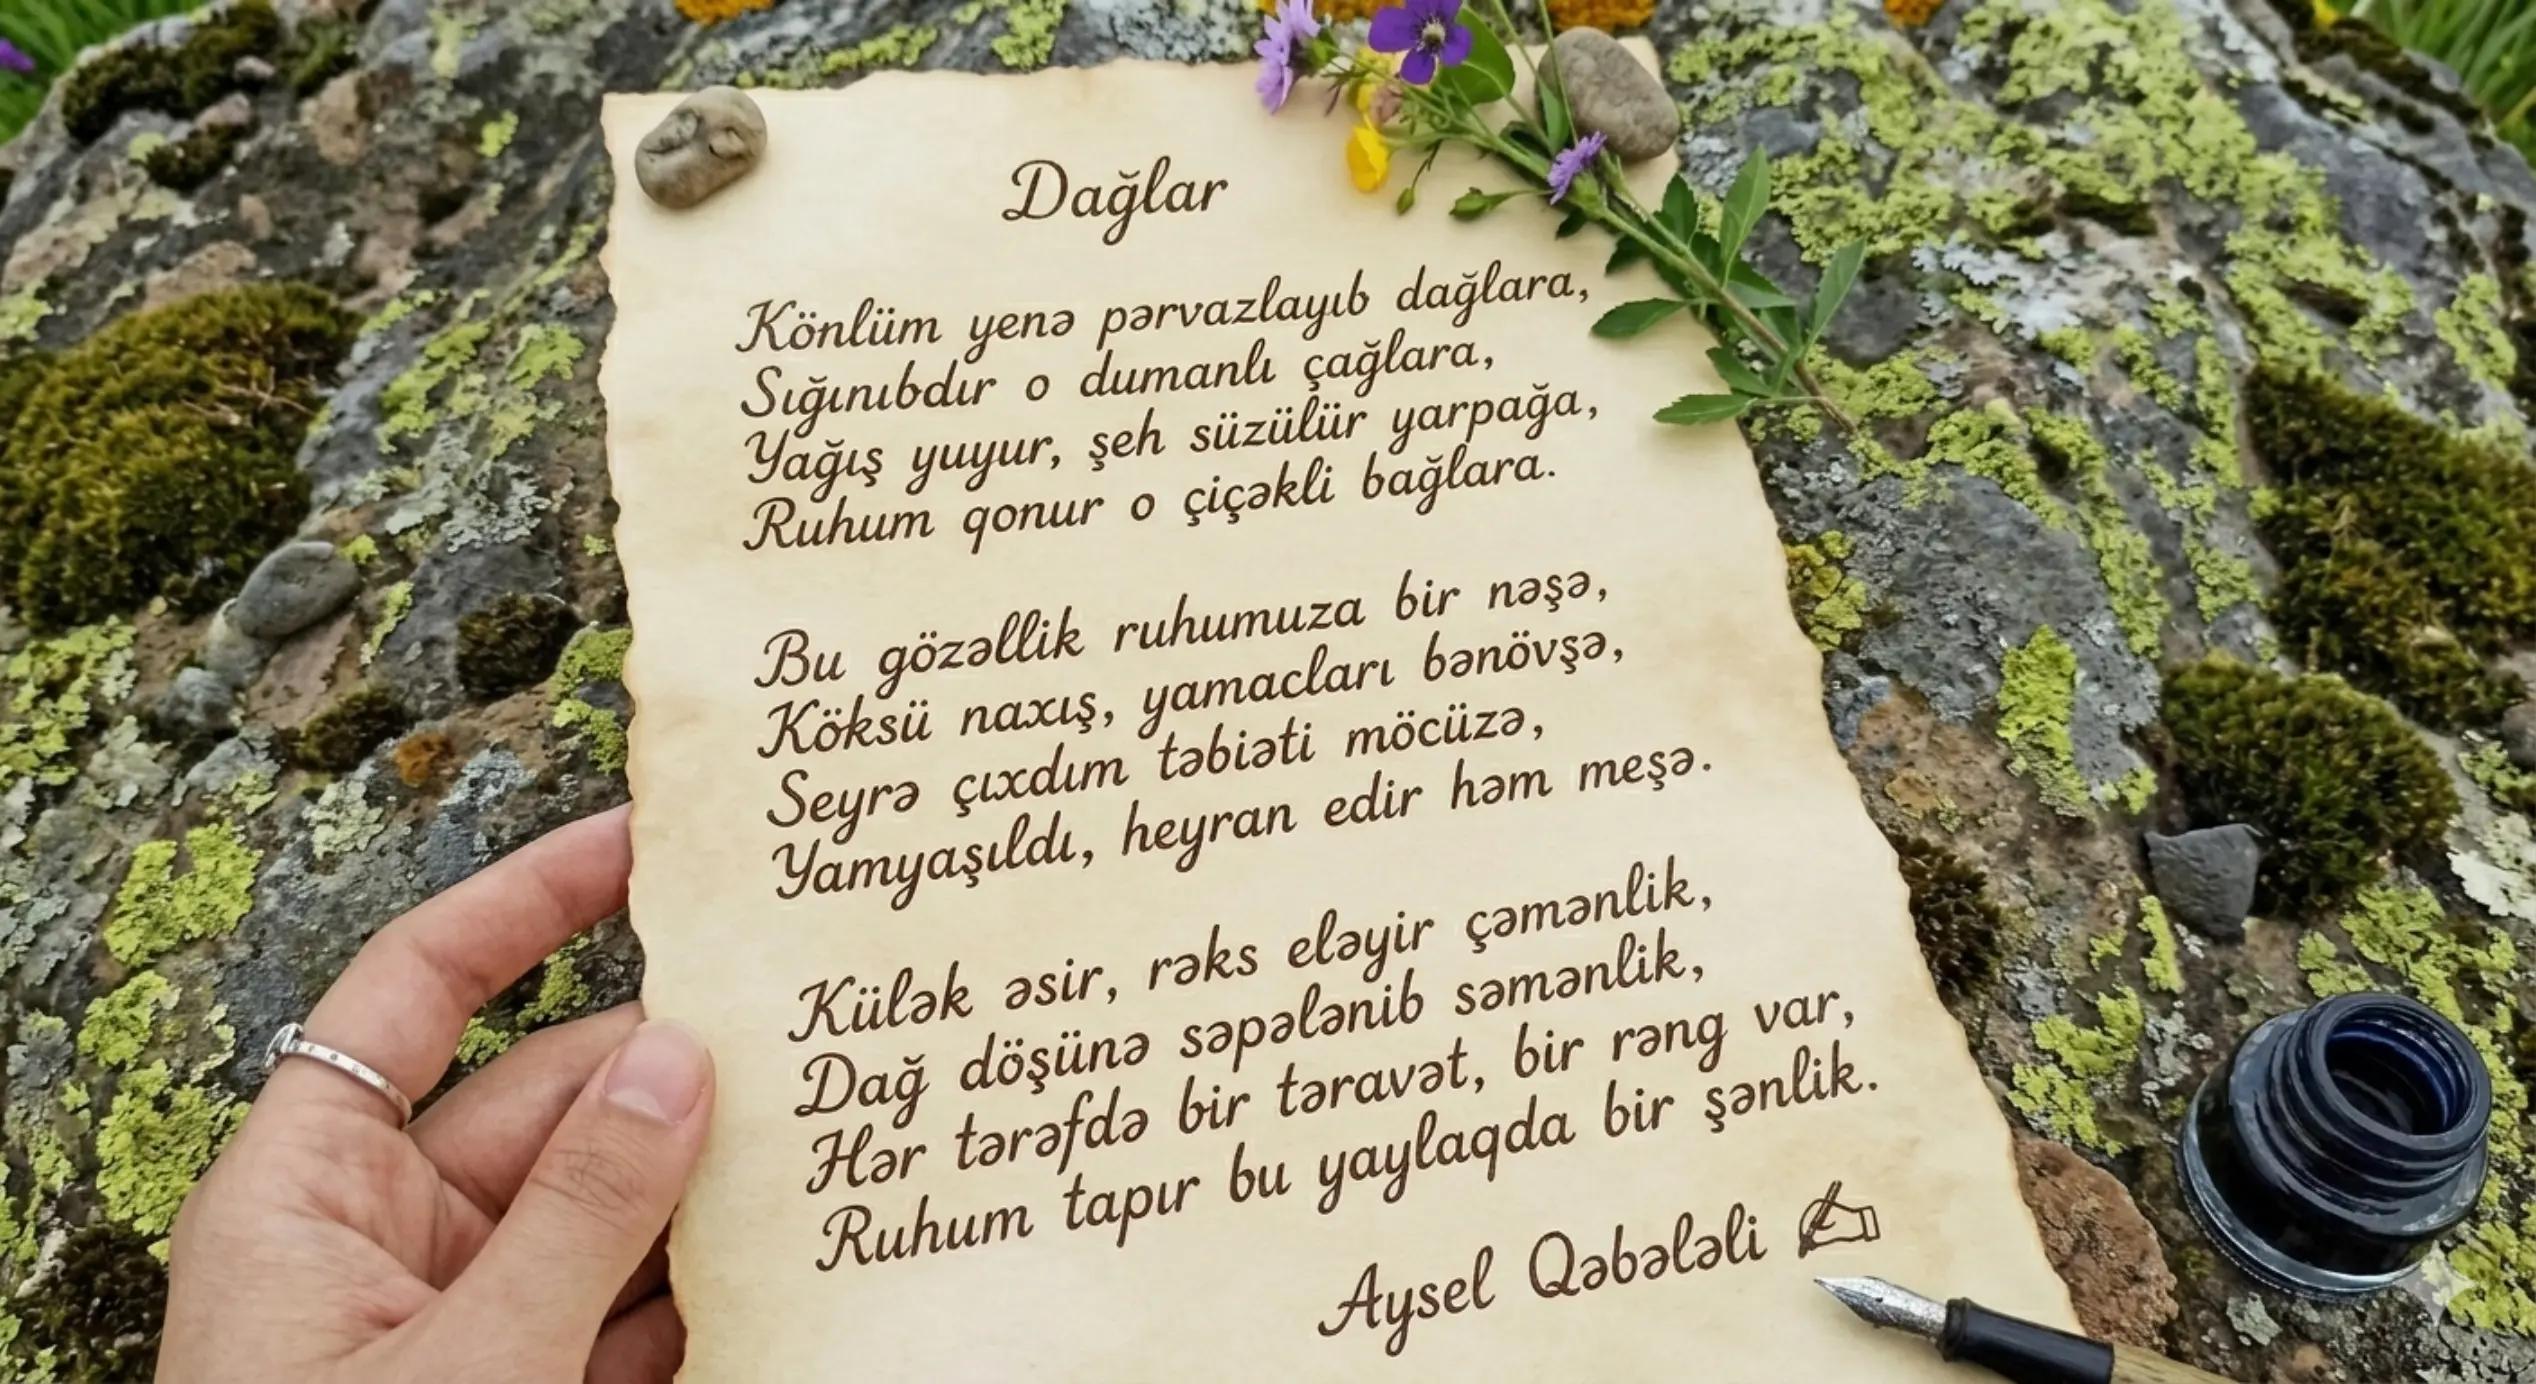 Dağlar
Könlüm yenə pərvazlayıb dağlara,
Sığınıbdır o dumanlı çağlara,
Yağış yuyur, şeh süzülür yarpağa,
Ruhum qonur o çiçəkli bağlara.
Bu gözəllik ruhumuza bir nəşə,
Köksü naxış, yamacları bənövşə,
Seyrə çıxdım təbiəti möcüzə,
Yamyaşıldı, heyran edir həm meşə.
Külək əsir, rəks eləyir çəmənlik,
Dağ döşünə səpələnib səmənlik,
Hər tərəfdə bir təravət, bir rəng var,
Ruhum tapır bu yaylaqda bir şənlik.
Aysel Qəbələli ✍